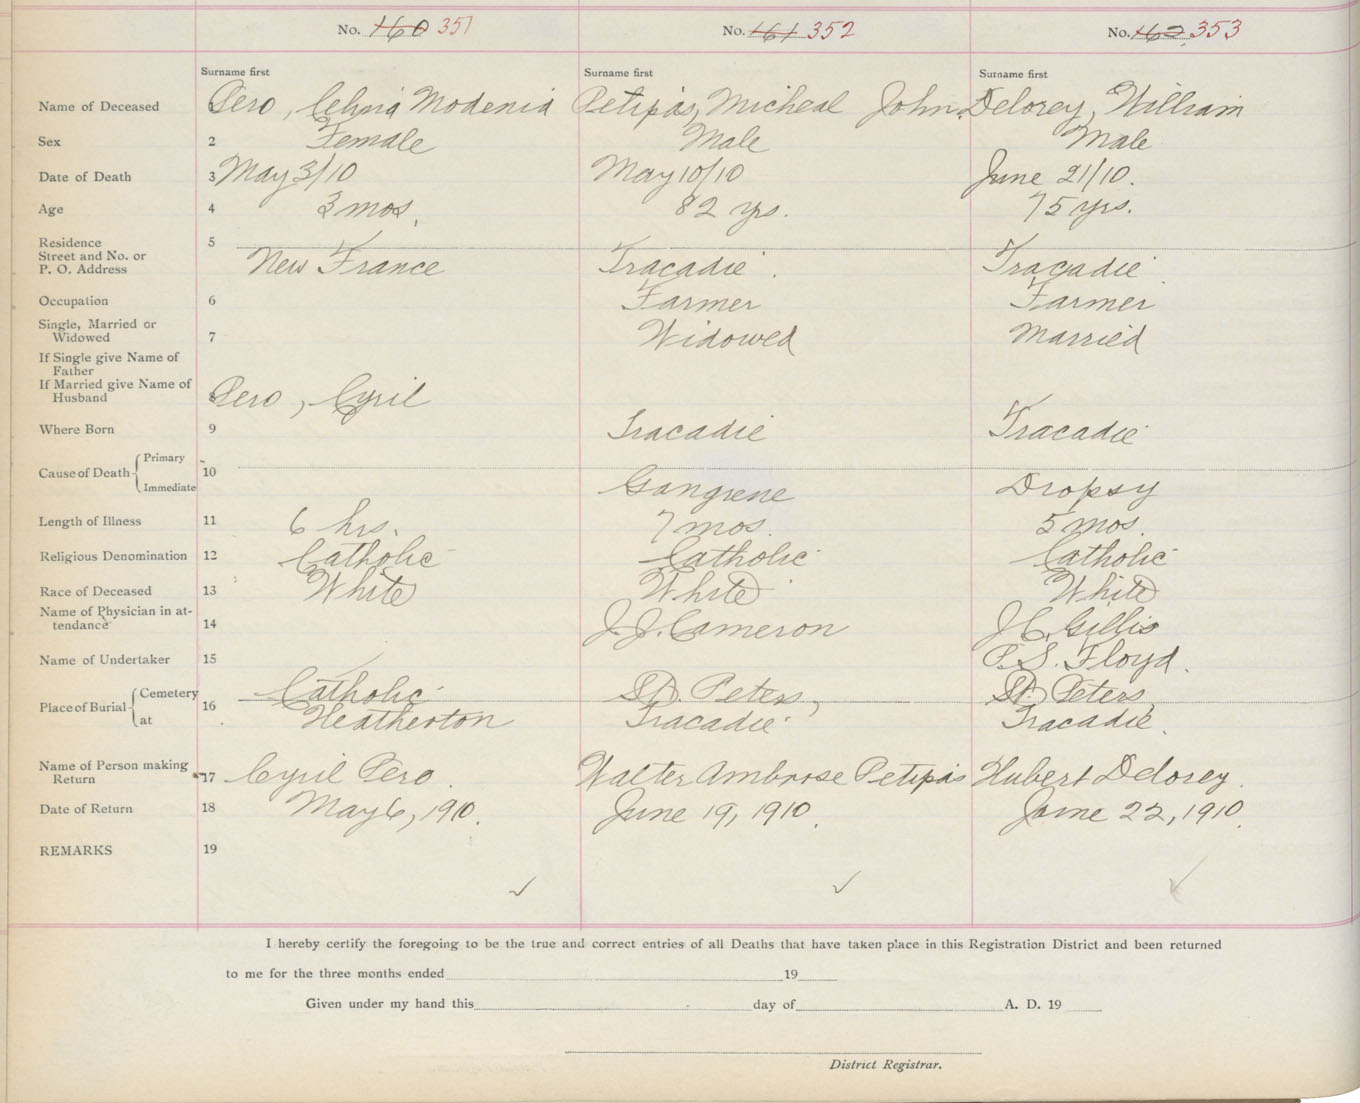 No. 160 351 No. 161 352 No. 162 353
Surname first Surname first Surname first
Name of Deceased 1 Pero, Modenia Petipas, Micheal John. Delorey, William
Sex 2 Female Male Male
Date of Death 3 May 3/10 May 10/10 June 21/10.
Age 4 3 mos. 82 yrs. 75 yrs.
Residence 5
Street and No. or
P. O. Address New France Tracadie. Tracadie
Occupation 6 Farmer Farmer
Single, Married or
Widowed 7 Widowed Married
If Single give Name of
Father
If Married give Name of
Husband 8 Pero, Cyril
Where Born 9 Tracadie Tracadie
Cause of Death Primary 10
Immediate Gangrene Dropsy
Length of Illness 11 6 hrs. 7 mos. 5 mos.
Religious Denomination 12 Catholic Catholic Catholic
Race of Deceased 13 White White White
Name of Physician in at-
tendance 14 J. J. Cameron J. C. Gillis
Name of Undertaker 15 P. S. Floyd.
Place of Burial Cemetery 16 Catholic St. Peters, St. Peters,
at Heatherton Tracadie Tracadie.
Name of Person making
Return 17 Cyril Pero. Walter Ambrose Petipas Hubert Delorey.
Date of Return 18 May 6, 1910. June 19, 1910. June 22, 1910.
REMARKS 19
I hereby certify the foregoing to be the true and correct entries of all Deaths that have taken place in this Registration District and been returned
to me for the three months ended 19
Given under my hand this day of A. D. 19
District Registrar.